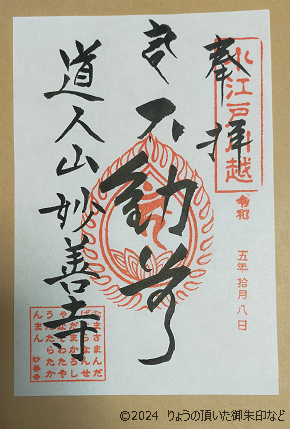 奉拝
小江戸川越
令和五年拾月八日
不動尊
道人山妙善寺
なまさまんだ
ばさらなんせ
んだまかろし
ゃだそわたや
うんたらたか
んまん
妙善寺
©2024 りょうの頂いた御朱印など